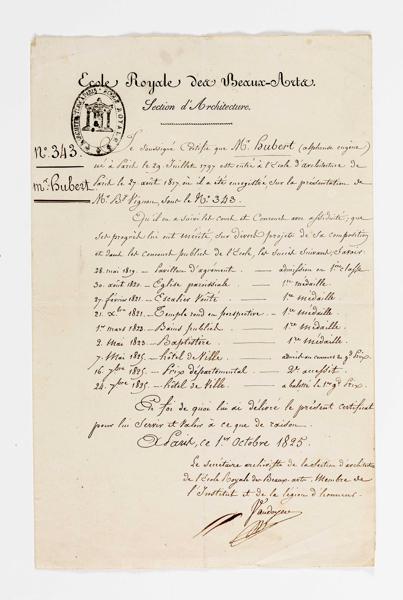 Ecole Royale des Beaux-Arts.
Section d'Architecture.
N.º 343.
Mr. Hubert
Je soussigné Certifie que Mr. Hubert (alphonse eugène)
né à Paris le 29 Juillet 1797 est entré à l'Ecole d'architecture de
Paris le 27 août 1817 où il a été enregistré sur la présentation de
Mr. Bt. Vignon, sous le Nº. 343.
Qu'il en a suivi les cours et Concours avec assiduité; que
ses progrès lui ont mérité, sur divers projets de Sa composition
et dans les concours publics de l'Ecole, les succès suivans, Savoir:
28. mai 1819. — Pavillon d'agrément. — admission en 1ere classe
30. août 1820. — Eglise paroissiale — 1re médaille
27. février 1821. — Escalier Voûté — 1re médaille
21. xbre 1821. — Temple rond en perspective — 1re médaille
1er mars 1823 — Bains publics — 1re médaille
2. Mai 1823 — Baptistère — 1re médaille
7. Mai 1825. — hôtel de Ville — admis au concours du gd. Prix
16. 7bre 1825. — Prix départemental — 2e accessit
28. 7bre 1825. — hôtel de Ville. — a balotté le 1er gd. Prix.
En foi de quoi lui ai délivré le présent certificat
pour lui Servir et Valoir à ce que de raison.
à Paris, ce 1er Octobre 1825.
Le secrétaire archiviste de la Section d'architecture
de l'Ecole Royale des Beaux-arts, Membre de
l'Institut et de la légion d'honneur.
Vaudoyer